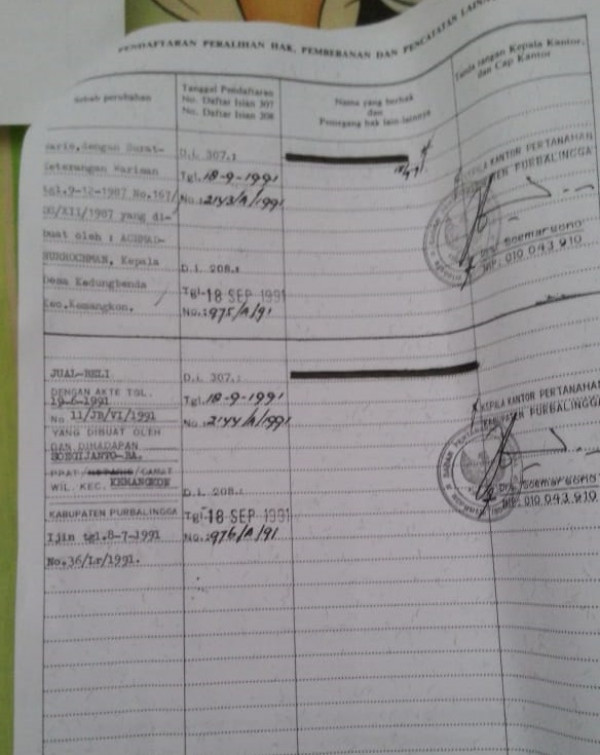 PENDAFTARAN PERALIHAN HAK, PEMBEBANAN DAN PENCATATAN LAINNYA
Sebab perubahan
Tanggal Pendaftaran
No. Daftar Isian 307
No. Daftar Isian 208
Nama yang berhak
dan
Pemegang hak lain-lainnya
Tanda tangan Kepala Kantor,
dan Cap Kantor
Waris,dengan Surat-
Keterangan Warisan
tgl.9-12-1987 No.167/
/XII/1987 yang di-
buat oleh : ACHMAD-
NURROCHMAN, Kepala
Desa Kedungbenda
Kec.Kemangkon.
D.i. 307.:
Tgl. 18-9-1991
No. 2143/A/1991
D.i. 208.:
Tgl. 18 SEP 1991
No. 975/A/91
KEPALA KANTOR PERTANAHAN
KABUPATEN PURBALINGGA
Drs. Soemarsono
NIP: 010 043 910
JUAL-BELI
DENGAN AKTE TGL.
19-6-1991
No 11/JB/VI/1991
YANG DIBUAT OLEH
DAN DIHADAPAN
SOEGIJANTO-BA.
PPAT/NOTARIS/CAMAT
WIL. KEC. KEMANGKON
KABUPATEN PURBALINGGA
Ijin tgl.8-7-1991
No.36/Lr/1991.
D.i. 307.:
Tgl. 18-9-1991
No. 2144/A/1991
D.i. 208.:
Tgl. 18 SEP 1991
No. 976/A/91
KEPALA KANTOR PERTANAHAN
KABUPATEN PURBALINGGA
Drs. Soemarsono
NIP: 010 043 910